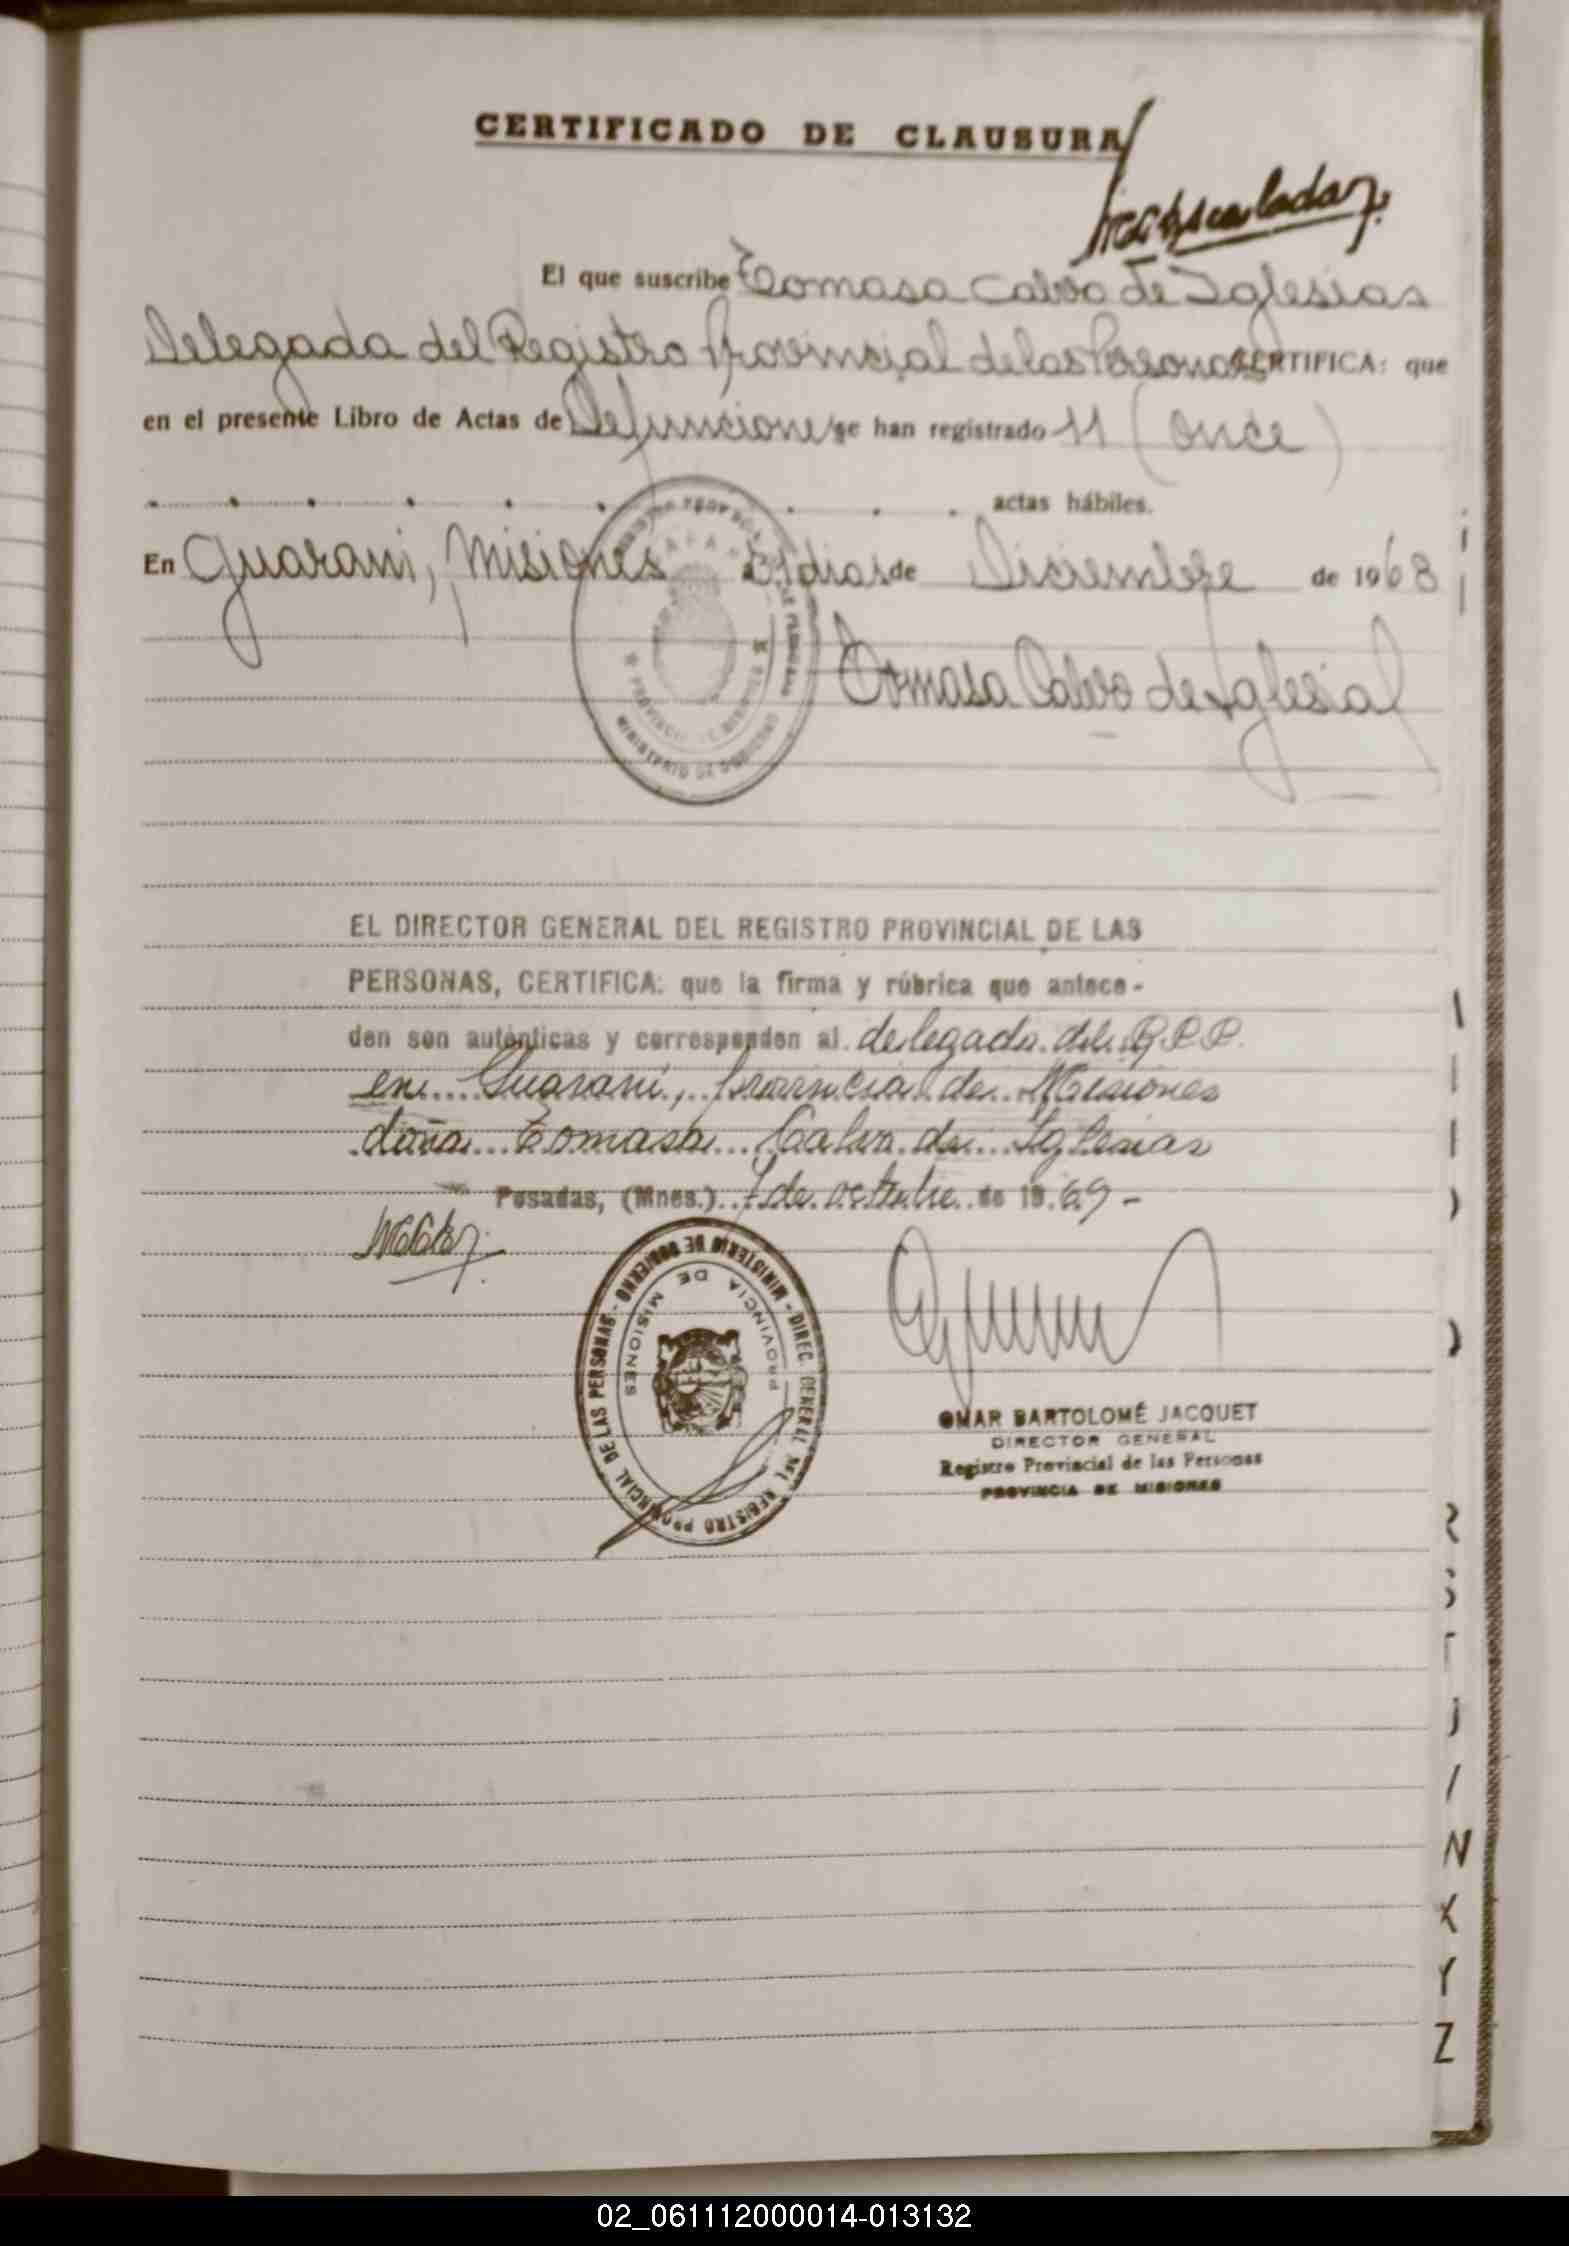 CERTIFICADO DE CLAUSURA
El que suscribe Tomasa Calvo de Iglesias
Delegada del Registro Provincial de las Personas CERTIFICA: que
en el presente Libro de Actas de Defunciones se han registrado 11 (once)
actas hábiles.
En Guarani, Misiones 31 dias de Diciembre de 1968
Tomasa Calvo de Iglesias
PROVINCIA DE MISIONES
MINISTERIO DE GOBIERNO
EL DIRECTOR GENERAL DEL REGISTRO PROVINCIAL DE LAS
PERSONAS, CERTIFICA: que la firma y rúbrica que antece-
den son auténticas y corresponden al delegada del R.P.P.
en Guaraní, provincia de Misiones
doña Tomasa Calvo de Iglesias
Posadas, (Mnes.) 7 de octubre de 1969-
MINISTERIO DE GOBIERNO - DIREC. GENERAL DEL REGISTRO PROVINCIAL DE LAS PERSONAS -
PROVINCIA DE MISIONES
OMAR BARTOLOMÉ JACQUET
DIRECTOR GENERAL
Registro Provincial de las Personas
PROVINCIA DE MISIONES
N
X
Y
Z
02_061112000014-013132